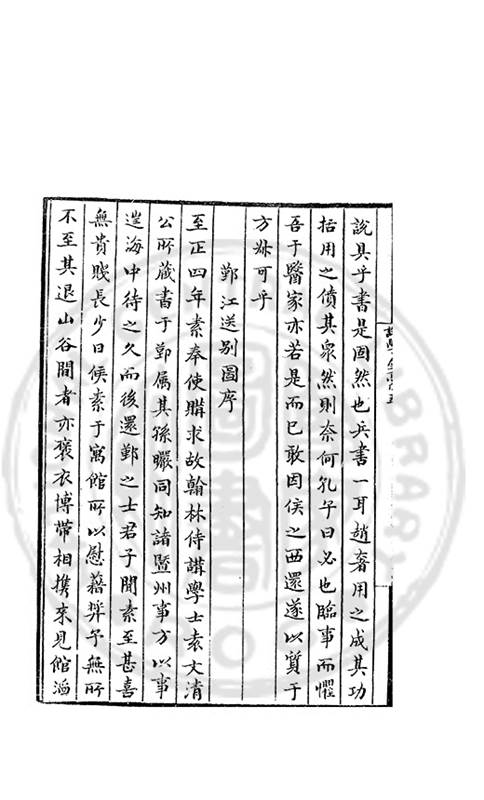 說具乎書是固然也兵書一耳趙奢用之成其功
括用之僨其衆然則奈何孔子曰必也臨事而懼
吾于醫家亦若是而已敢因侯之西還遂以質于
方姊可乎
鄞江送别圖序
至正四年素奉使購求故翰林侍講學士袁文清
公所藏書于鄞属其孫曮同知諸暨州事方以事
逰海中待之久而後還鄞之士君子聞素至甚喜
無貴賤長少日候素于寓館所以慰藉弊予無所
不至其退山谷間者亦褒衣博帶相携來見館滔